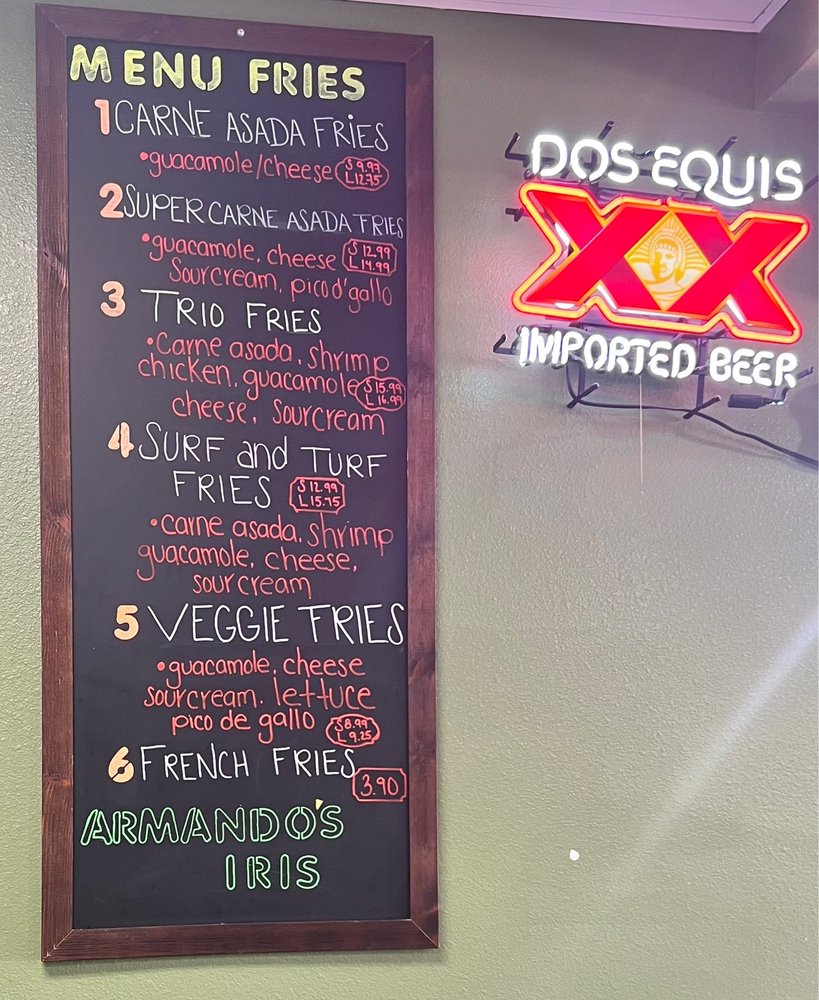 MENU FRIES
1 CARNE ASADA FRiES
•guacamole/cheese S 9.97
L 12.75
2 SUPER CARNE ASADA FRIES
•guacamole, cheese S 12.99
L 14.99
Sourcream, pico d'gallo
3 TRIO FRIES
•Carne asada, shrimp
chicken, guacamole S 15.99
L 16.99
cheese, Sourcream
4 SURF and TURF
FRIES S 12.99
L 15.75
•carne asada, shrimp
guacamole, cheese,
sourcream
5 VEGGIE FRIES
•guacamole, cheese
sourcream, lettuce
pico de gallo S 8.99
L 9.25
6 FRENCH FRIES
3.90
ARMANDO'S
IRIS
DOS EQUIS
XX
IMPORTED BEER